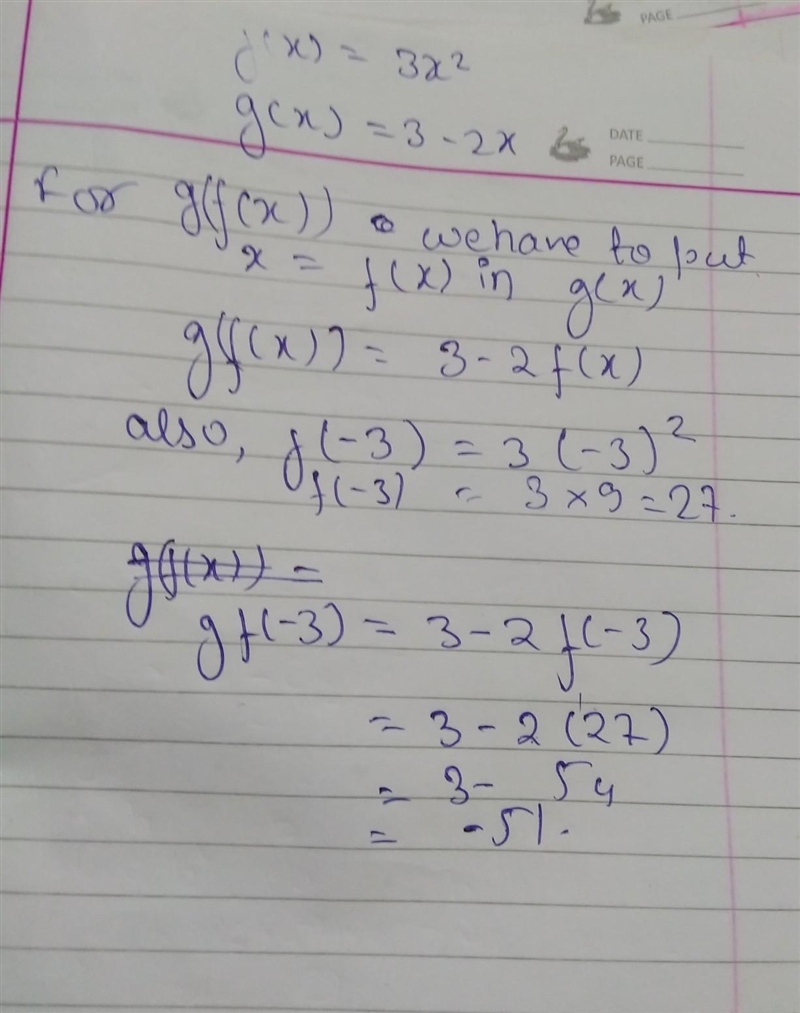 PAGE
f(x) = 3x²
g(x) = 3 - 2x
DATE
PAGE
For g(f(x)) we have to put
x = f(x) in g(x)
g(f(x)) = 3 - 2 f(x)
also, f(-3) = 3 (-3)²
f(-3) = 3 × 9 = 27.
g(f(x)) =
gf(-3) = 3 - 2 f(-3)
= 3 - 2 (27)
= 3 - 54
= -51.